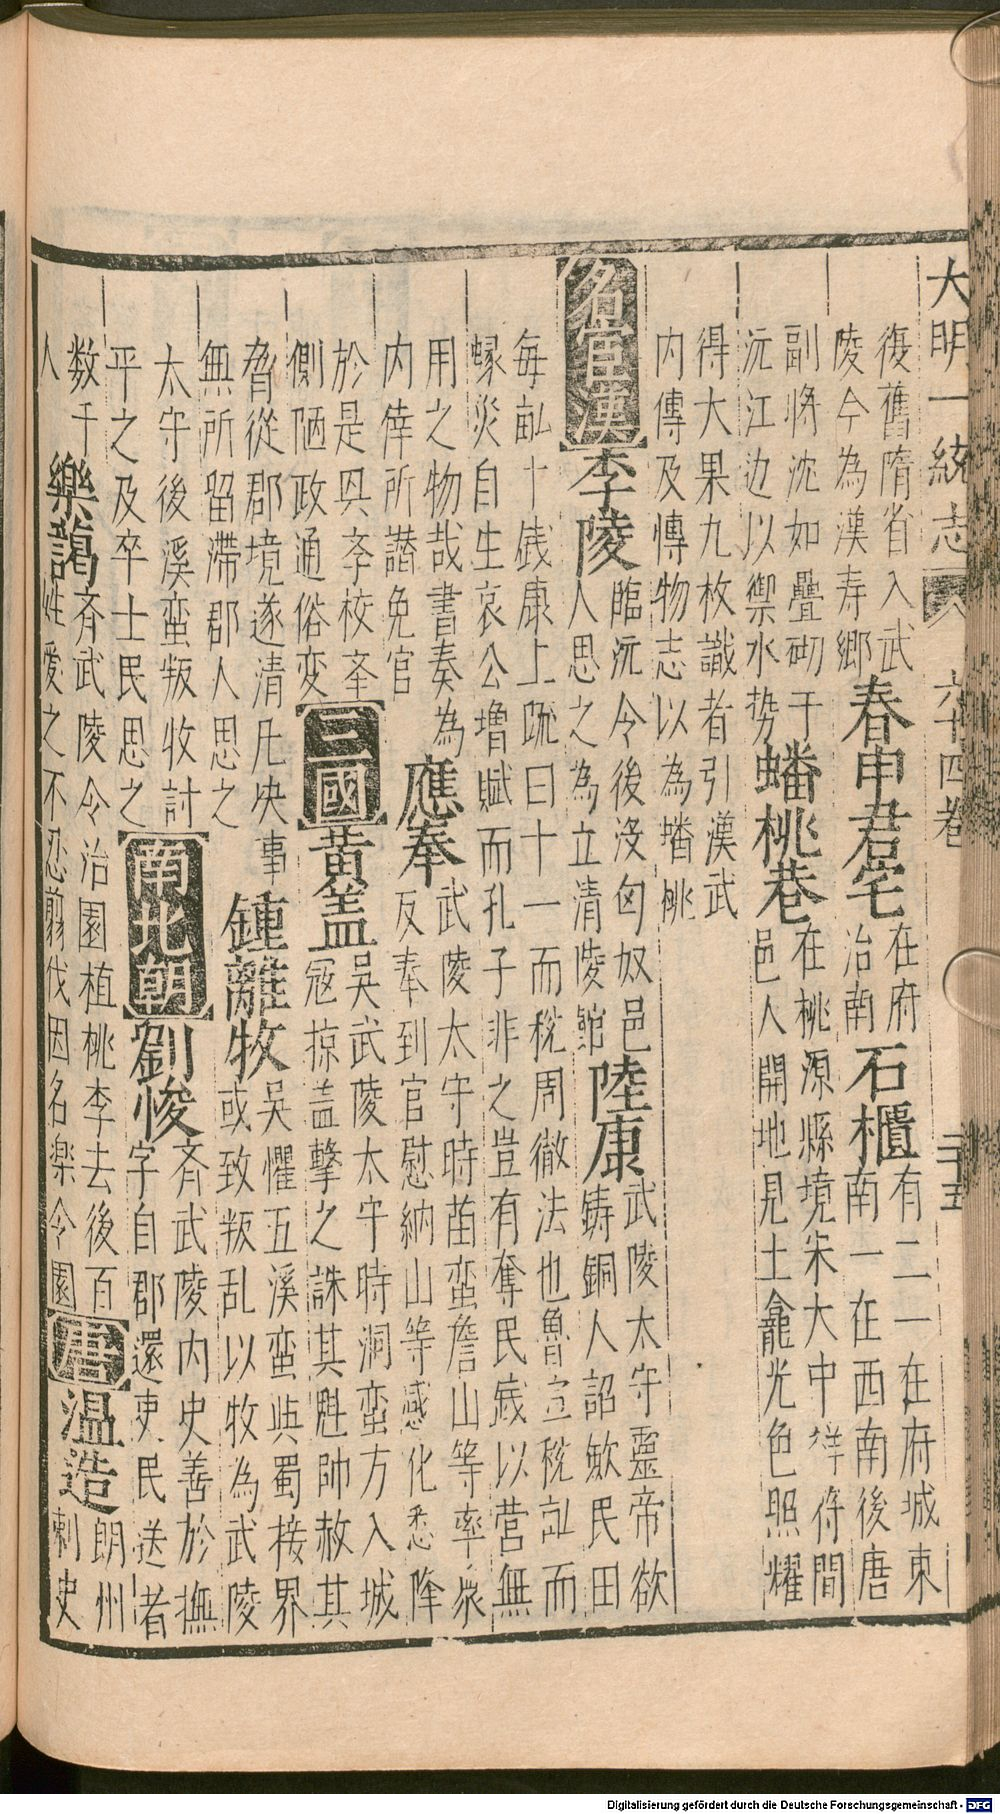 大明一統志 八 六十四卷 二十五
復舊隋省入武陵今為漢寿鄉 春申君宅 在府治南 石櫃 有二一在府城東南一在西南後唐
副将沈如疊砌于沅江边以禦水势 蟠桃巷 在桃源縣境宋大中祥符間邑人開地見土龕光色照耀
得大果九枚識者引漢武内傳及慱物志以為墦桃
名宦漢 李陵 臨沅令後没匈奴邑人思之為立清陵館 陸康 武陵太守靈帝欲鋳銅人詔歛民田
毎畆十銭康上䟽曰十一而稅周徹法也魯宣稅畆而蝝災自生哀公增賦而孔子非之豈有奪民銭以营無
用之物哉書奏為内倖所譖免官 應奉 武陵太守時酋蛮詹山等率衆反奉到官慰納山等感化悉降
於是興斈校荃側陋政通俗变 三國 黄盖 吳武陵太守時洞蛮方入城寇掠盖擊之誅其魁帥赦其
脅從郡境遂清凡决事無所留滞郡人思之 鍾離牧 吳懼五溪蛮與蜀接界或致叛乱以牧為武陵
太守後溪蛮叛收討平之及卒士民思之 南北朝 劉悛 斉武陵内史善於撫字自郡還吏民送者
数千人 樂藹 斉武陵令治園植桃李去後百姓愛之不忍翦伐因名楽令園 唐 温造 朗州刺史
Digitalisierung gefördert durch die Deutsche Forschungsgemeinschaft - DFG